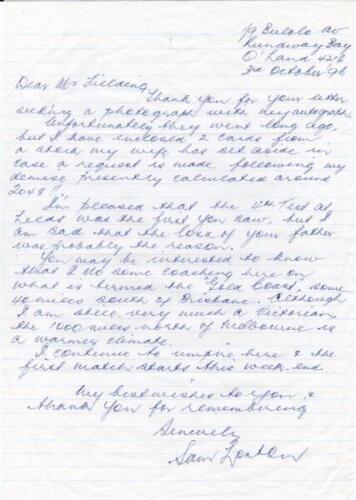 19 Eulolo av
Runaway Bay
Q'land 4216
3rd October 96
Dear Mr Fielding
Thank you for your letter
seeking a photograph with my autograph.
Unfortunately they went long ago,
but I have enclosed 2 cards from
a stock my wife has set aside in
case a request is made following my
demise presently calculated around
2048!!
I'm pleased that the 4th Test at
Leeds was the first you saw, but I
am sad that the loss of your father
was probably the reason.
You may be interested to know
that I do some coaching here on
what is termed the "Gold Coast", some
40 miles south of Brisbane. Although
I am still very much a Victorian
the 1000 miles north of Melbourne is
a warmer climate.
I continue to umpire here & the
first match starts this week-end.
My best wishes to you &
thank you for remembering
Sincerely
Sam Loxton